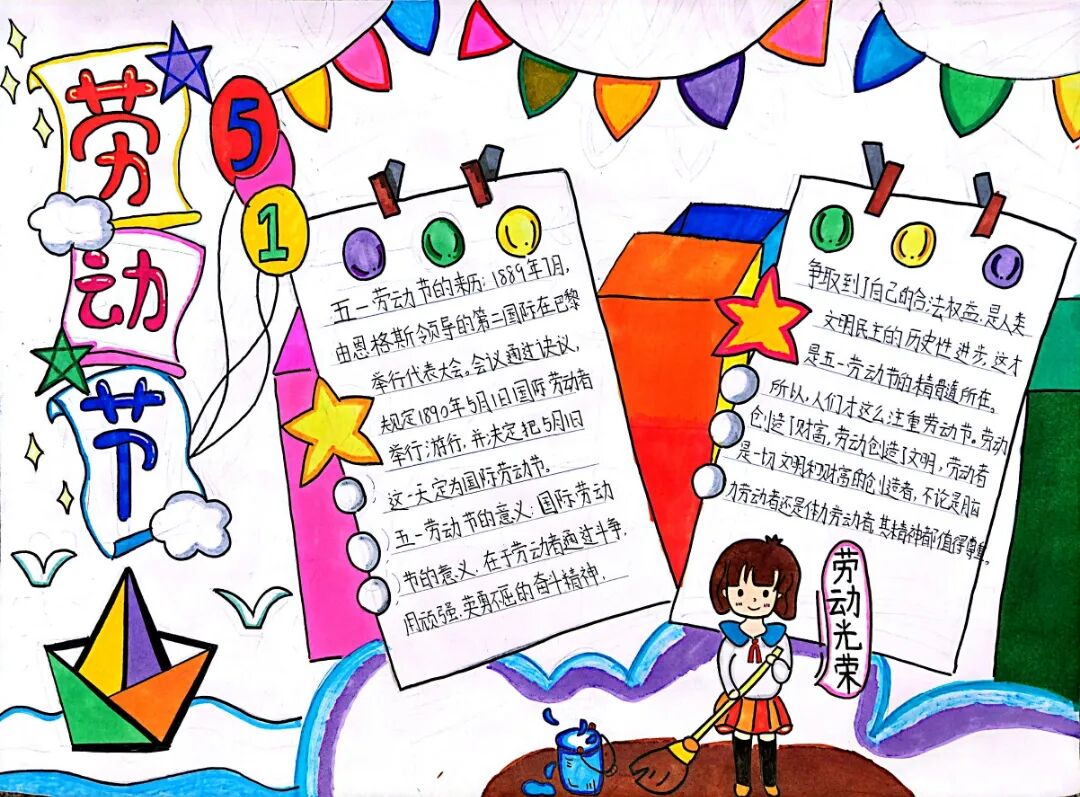 劳
动
节
5
1
五一劳动节的来历：1889年7月，
由恩格斯领导的第二国际在巴黎
举行代表大会。会议通过决议，
规定1890年5月1日国际劳动者
举行游行，并决定把5月1日
这一天定为国际劳动节。
五一劳动节的意义：国际劳动
节的意义，在于劳动者通过斗争，
用顽强、英勇不屈的奋斗精神，
争取到了自己的合法权益，是人类
文明民主的历史性进步，这才
是五一劳动节的精髓所在。
所以，人们才这么注重劳动节。劳动
创造了财富，劳动创造了文明，劳动者
是一切文明和财富的创造者，不论是脑
力劳动者还是体力劳动者，其精神都值得尊重。
劳动光荣